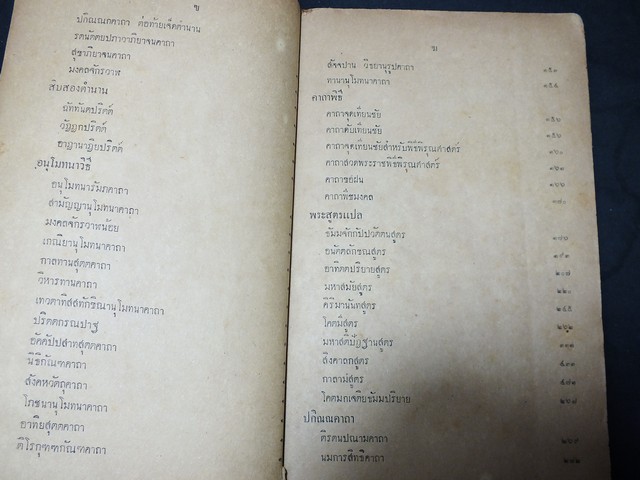 ข
ปกิณณกคาถา ต่อท้ายเจ็ดตำนาน
รตนัตตยปภาวาภิยาจนคาถา
สุขาภิยาจนคาถา
มงคลจักรวาฬ
สิบสองตำนาน
ฉัททันตปริตต์
วัฏฏกปริตต์
อาฏานาฏิยปริตต์
อนุโมทนาวิธี
อนุโมทนารัมภคาถา
สามัญญานุโมทนาคาถา
มงคลจักรวาฬน้อย
เกณิยานุโมทนาคาถา
กาลทานสุตตคาถา
วิหารทานคาถา
เทวตาทิสสทักขิณานุโมทนาคาถา
ปริตตกรณปาฐ
อัคคัปปสาทสุตตคาถา
นิธิกัณฑคาถา
สังคหวัตถุคาถา
โภชนานุโมทนาคาถา
อาทิยสุตตคาถา
ติโรกุฑฑกัณฑคาถา
ฆ
สัจจปาน วิชยานุรูปคาถา ๑๕๓
ทานานุโมทนาคาถา ๑๕๔
คาถาพิธี
คาถาจุดเทียนชัย ๑๕๖
คาถาดับเทียนชัย
คาถาจุดเทียนชัยสำหรับพิธีพิรุณศาสตร์
คาถาสวดพระราชพิธีพิรุณศาสตร์
คาถาขอฝน ๑๖๖
คาถาพืชมงคล
พระสูตรแปล
ธัมมจักกัปปวัตตนสูตร
อนัตตลักขณสูตร ๑๙๓
อาทิตตปริยายสูตร ๒๐๗
มหาสมัยสูตร ๒๒๐
คิริมานันทสูตร ๒๔๕
โคตมีสูตร
มหาสติปัฏฐานสูตร
สิงคาลกสูตร
กาลามสูตร
โคตมกเจติยธัมมปริยาย
ปกิณณคาถา
ติรตนปณามคาถา
นมการสิทธิคาถา